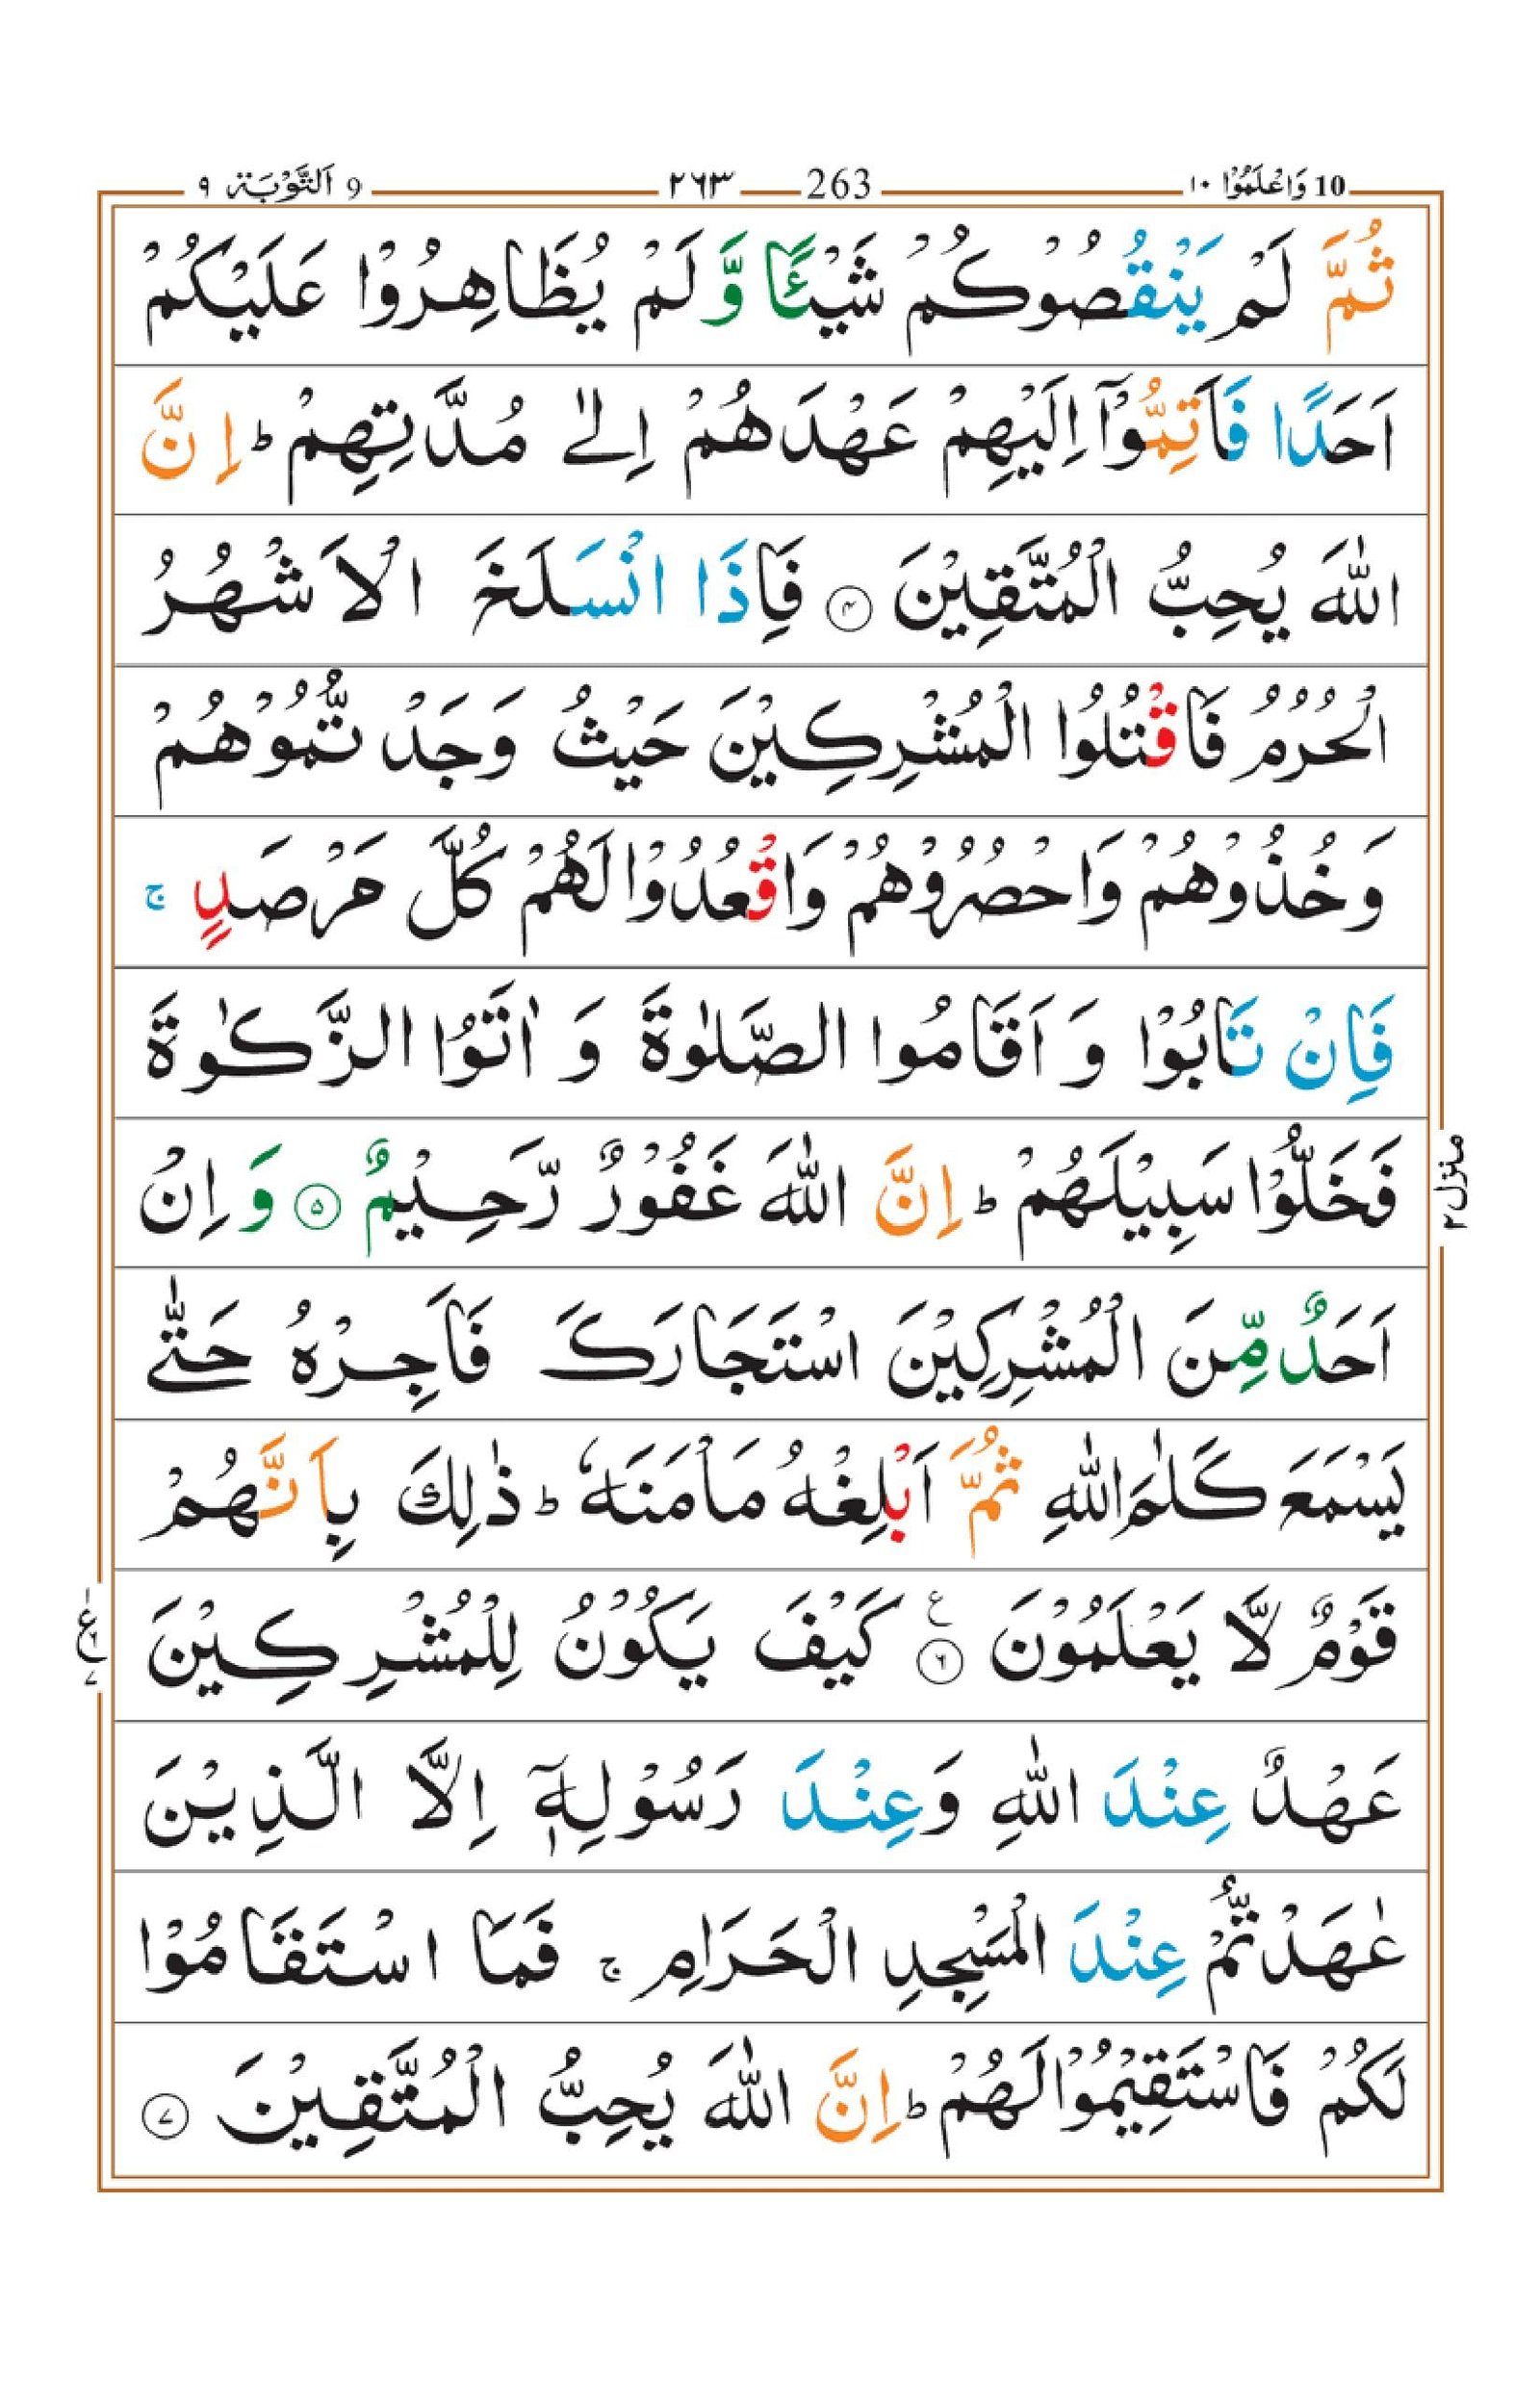 10 وَاعْلَمُوْۤا ١٠
263 ٢٦٣
9 اَلتَّوْبَة ٩
ثُمَّ لَمْ يَنْقُصُوْكُمْ شَيْـًٔا وَّلَمْ يُظَاهِرُوْا عَلَيْكُمْ
اَحَدًا فَاَتِمُّوْۤا اِلَيْهِمْ عَهْدَهُمْ اِلٰى مُدَّتِهِمْ ؕ اِنَّ
اللّٰهَ يُحِبُّ الْمُتَّقِيْنَ ۴ فَاِذَا انْسَلَخَ الْاَشْهُرُ
الْحُرُمُ فَاقْتُلُوا الْمُشْرِكِيْنَ حَيْثُ وَجَدْتُّمُوْهُمْ
وَخُذُوْهُمْ وَاحْصُرُوْهُمْ وَاقْعُدُوْا لَهُمْ كُلَّ مَرْصَدٍ ۚ
فَاِنْ تَابُوْا وَاَقَامُوا الصَّلٰوةَ وَاٰتَوُا الزَّكٰوةَ
فَخَلُّوْا سَبِيْلَهُمْ ؕ اِنَّ اللّٰهَ غَفُوْرٌ رَّحِيْمٌ ۵ وَاِنْ
اَحَدٌ مِّنَ الْمُشْرِكِيْنَ اسْتَجَارَكَ فَاَجِرْهُ حَتّٰى
يَسْمَعَ كَلٰمَ اللّٰهِ ثُمَّ اَبْلِغْهُ مَاْمَنَهٗ ؕ ذٰلِكَ بِاَنَّهُمْ
قَوْمٌ لَّا يَعْلَمُوْنَ ۶ ع كَيْفَ يَكُوْنُ لِلْمُشْرِكِيْنَ
عَهْدٌ عِنْدَ اللّٰهِ وَعِنْدَ رَسُوْلِهٖۤ اِلَّا الَّذِيْنَ
عٰهَدْتُّمْ عِنْدَ الْمَسْجِدِ الْحَرَامِ ۚ فَمَا اسْتَقَامُوْا
لَكُمْ فَاسْتَقِيْمُوْا لَهُمْ ؕ اِنَّ اللّٰهَ يُحِبُّ الْمُتَّقِيْنَ ۷
منزل ٢